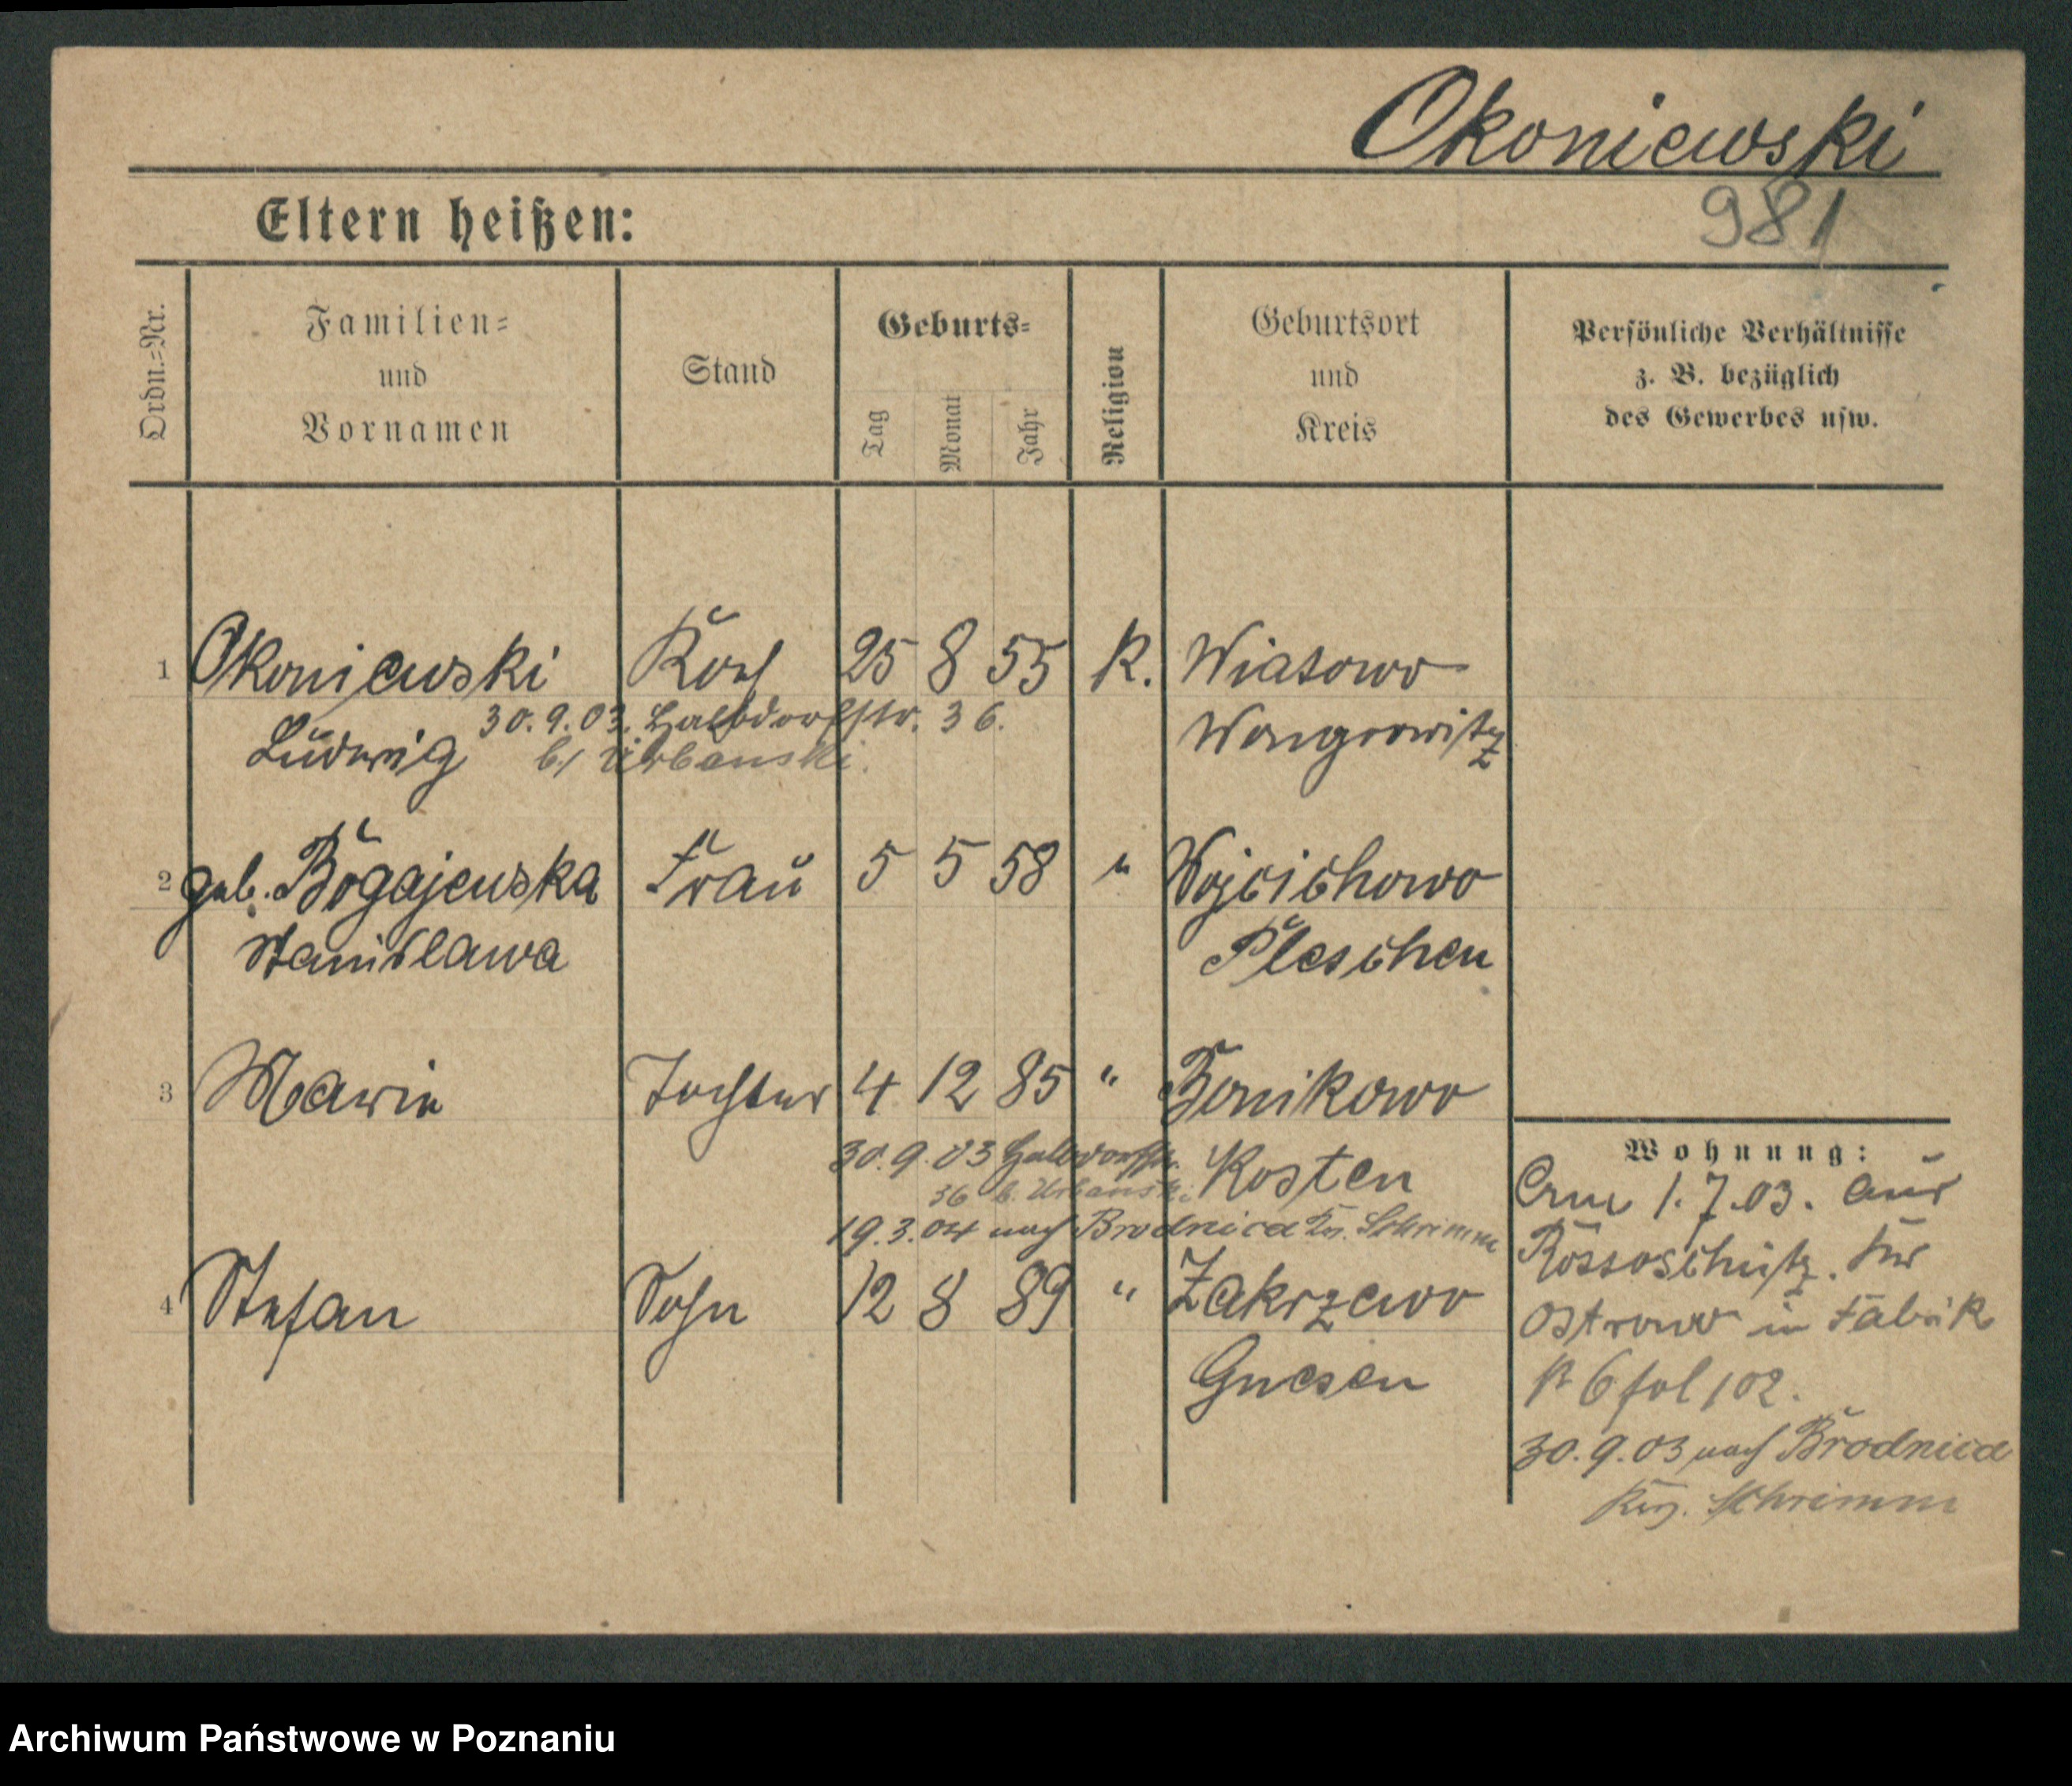 Okoniewski
981
Eltern heißen:
Ordn.=Nr.
Familien=
und
Vornamen
Stand
Geburts=
Tag
Monat
Jahr
Religion
Geburtsort
und
Kreis
Persönliche Verhältnisse
z. B. bezüglich
des Gewerbes usw.
1 Okoniewski Koch 25 8 55 K. Wiatowo
Ludwig 30.9.03. Halbdorfstr. 36. Wongrowitz
b/ Urbanski.
2 geb. Bogajewska Frau 5 5 58 " Wojcichowo
Stanislawa Pleschen
3 Marie Tochter 4 12 85 " Bonikowo
30.9.03 Halbdorfstr. Kosten
36 b. Urbanski
19.3.04 nach Brodnica Kr. Schrimm
4 Stefan Sohn 12 8 89 " Zakrzewo
Gnesen
Wohnung:
1.7.03. aus
Rossoschütz. Kr
Ostrowo in Fabrik
6 fol 102.
30.9.03 nach Brodnica
Krs. Schrimm
Archiwum Państwowe w Poznaniu